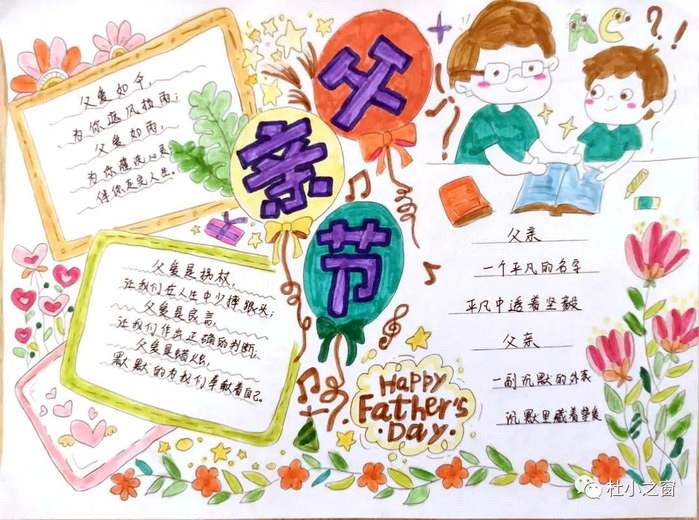 父亲节
父爱如伞,
为你遮风挡雨;
父爱如雨,
为你濯洗心灵
伴你走完人生。
父爱是拐杖,
让我们在人生中少摔跟头;
父爱是良言,
让我们作出正确的判断,
父爱是蜡烛,
默默的为我们奉献着自己。
A C ? ! !
父亲
一个平凡的名字
平凡中透着坚毅
父亲
一副沉默的外表
沉默里藏着
Happy
Father's
Day
杜小之窗